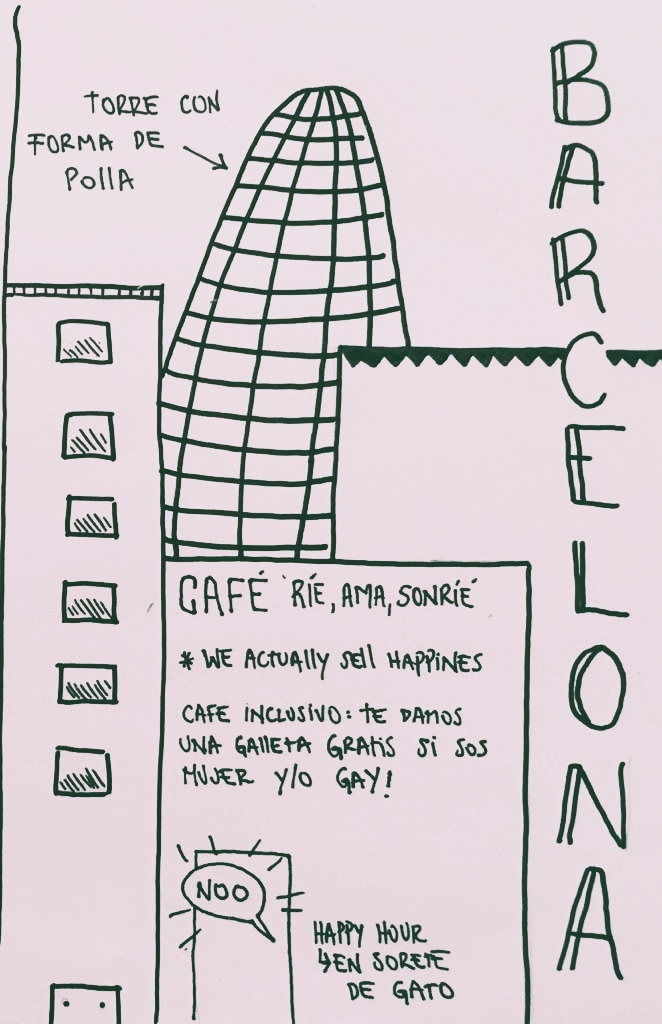 TORRE CON
FORMA DE
POllA
BARCELONA
CAFÉ 'RÍE, AMA, SONRÍE'
* WE ACTUALLY SELL HAPPINES
CAFE INCLUSIVO: TE DAMOS
UNA GALLETA GRATIS SI SOS
MUJER Y/O GAY!
NOO
HAPPY HOUR
↳EN SORETE
DE GATO